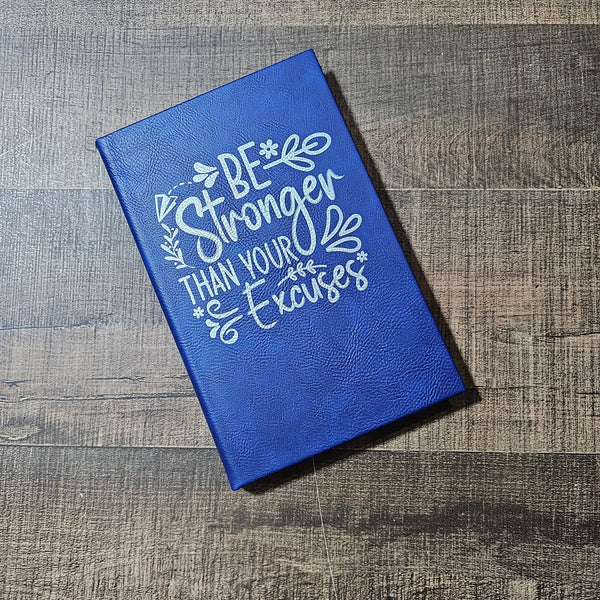 BE
Stronger
THAN YOUR
Excuses